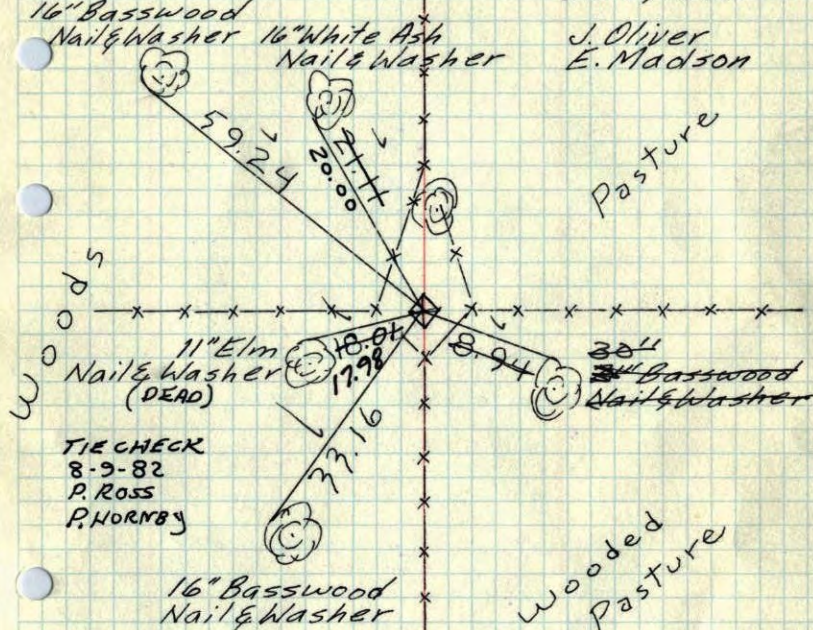 16" Basswood
Nail & Washer
16" White Ash
Nail & Washer
J. Oliver
E. Madson
59.24
21.11
20.00
Pasture
Woods
11" Elm
Nail & Washer
(DEAD)
18.01
17.98
8.94
30"
Basswood
Nail & Washer
33.16
TIE CHECK
8-9-82
P. ROSS
P. HORNBY
16" Basswood
Nail & Washer
Wooded
Pasture